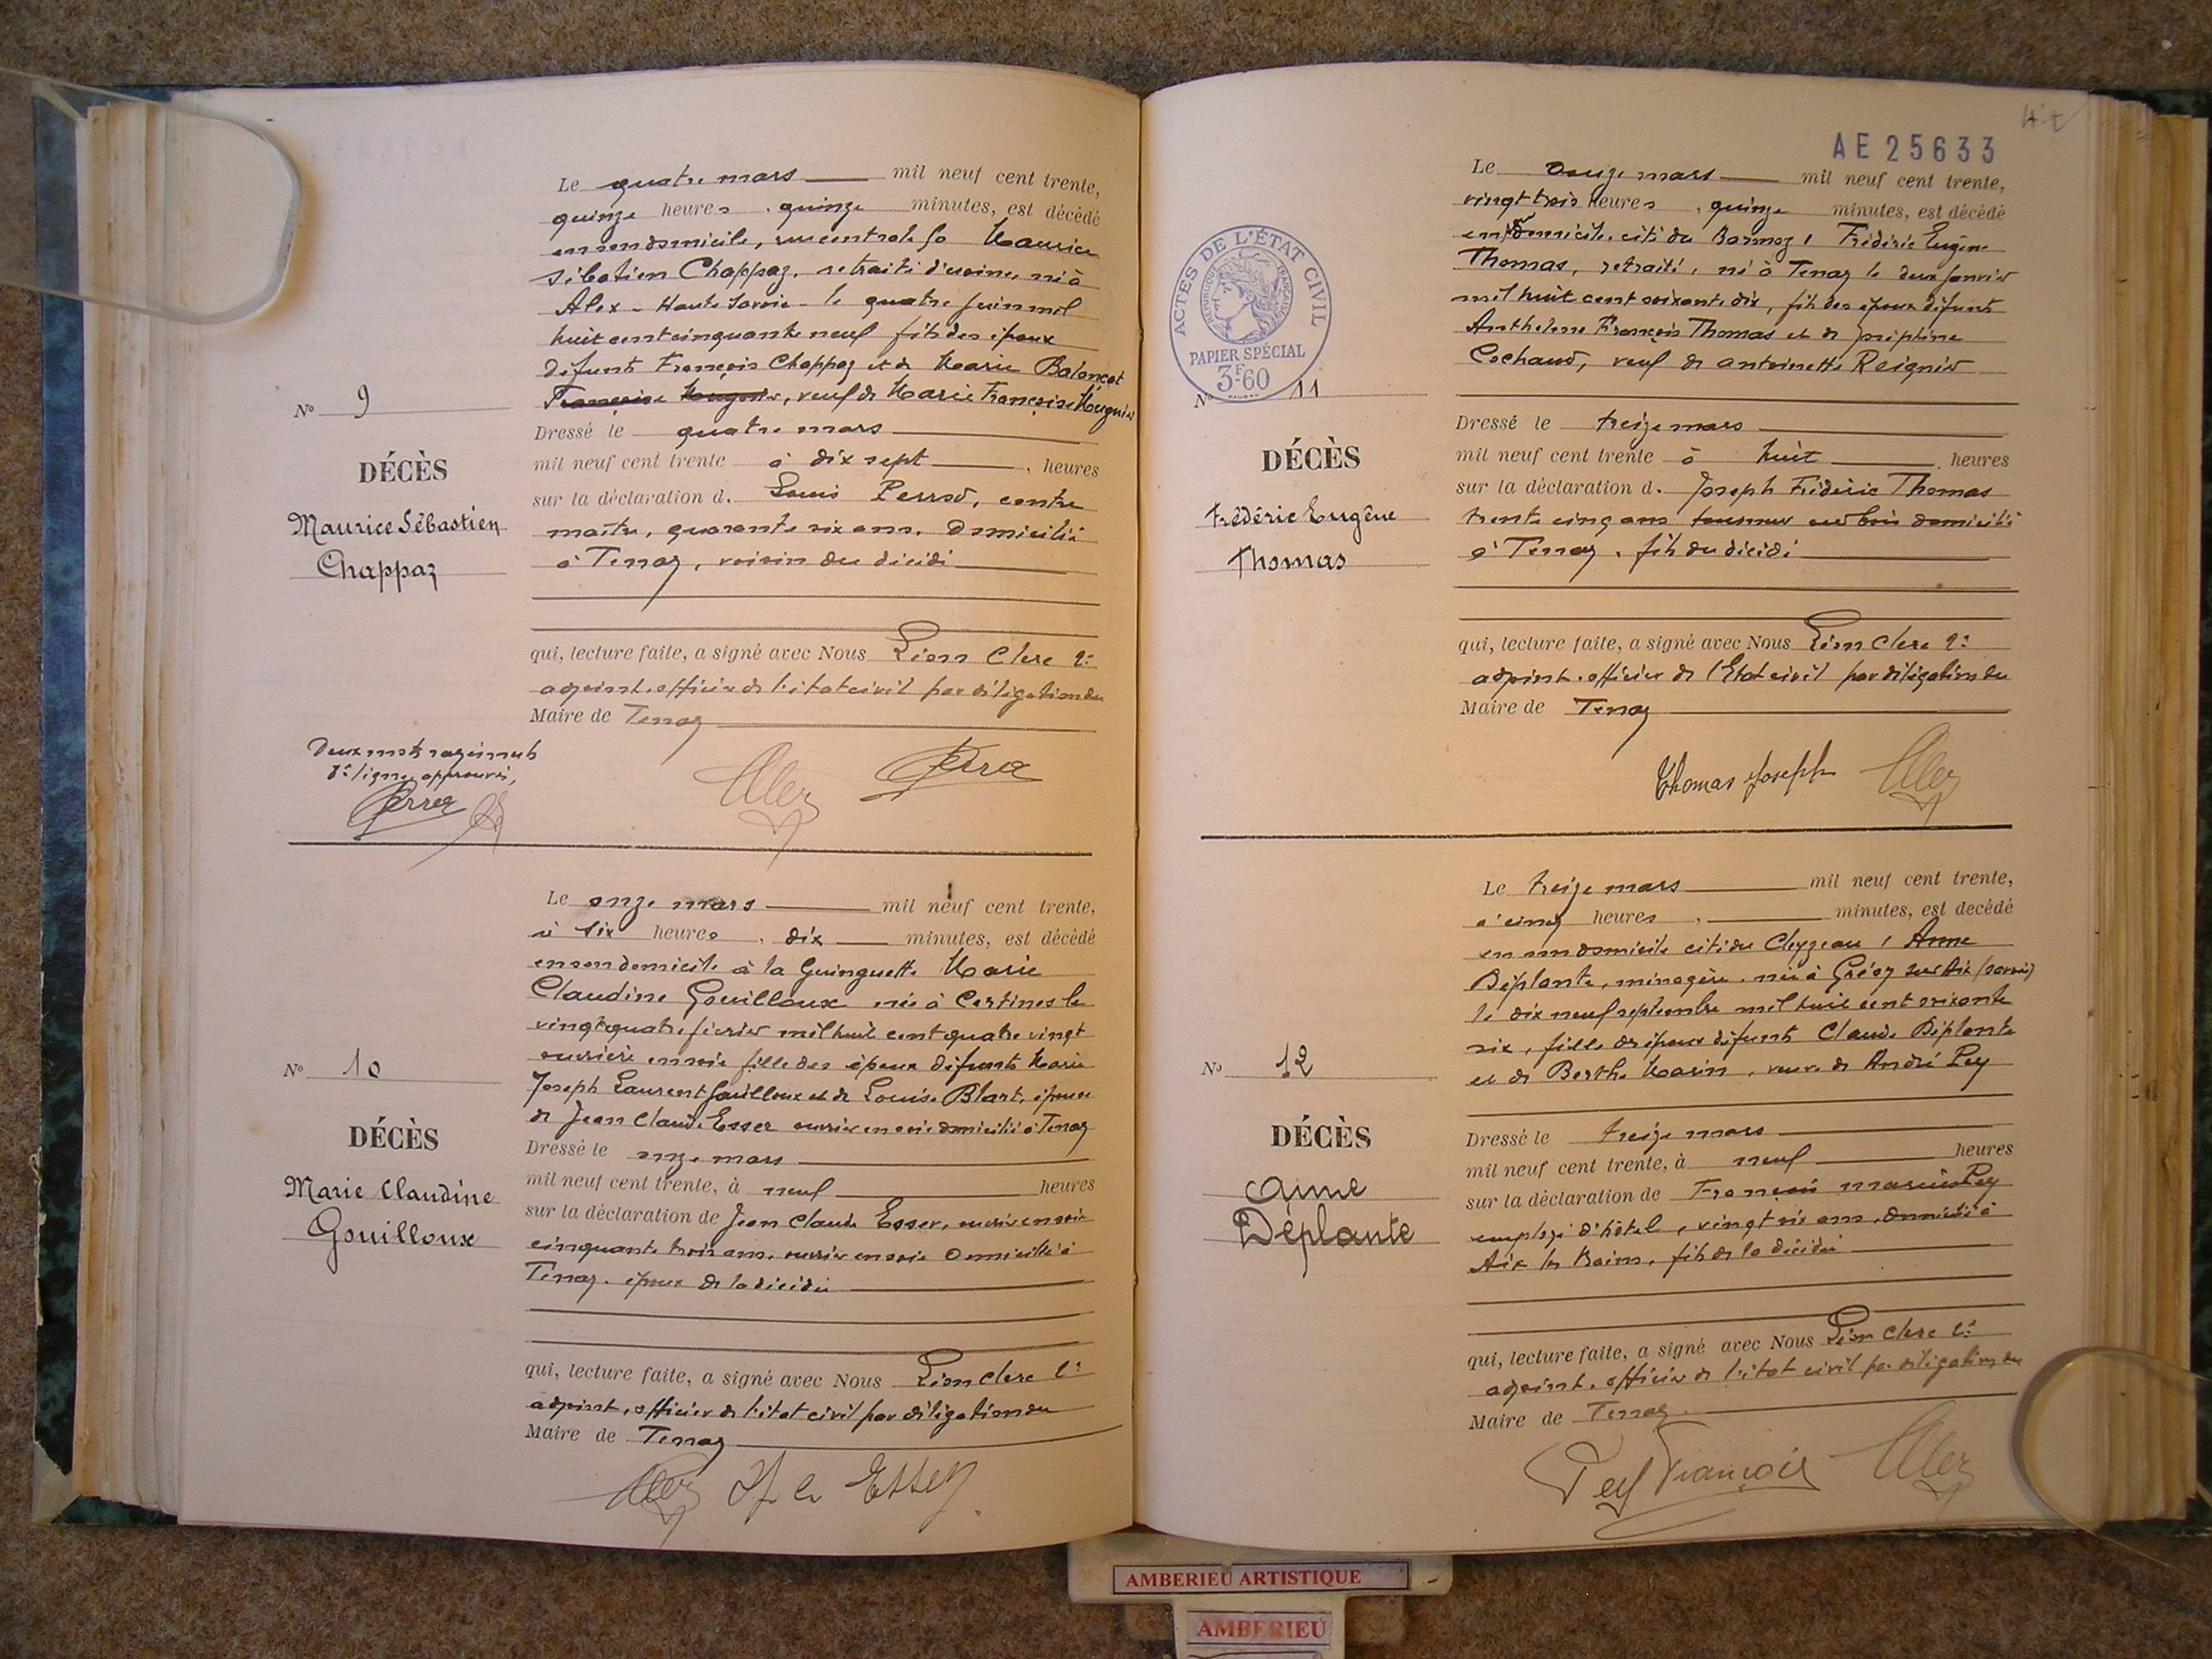 Le quatre mars mil neuf cent trente,
quinze heures, quinze minutes, est décédé
en son domicile, rue centrale 50 Maurice
Sébastien Chappaz, retraité d'usine, né à
Alex - Haute Savoie - le quatre juin mil
huit cent cinquante neuf fils des époux
défunts François Chappaz et de Marie Balançat
Françoise Mugnier, veuf de Marie Françoise Mugnier
N° 9
Dressé le quatre mars
mil neuf cent trente à dix sept, heures
DÉCÈS
sur la déclaration d. Louis Perrod, contre
Maurice Sébastien
maître, quarante six ans, domicilié
Chappaz
à Tenay, voisin du décédé
qui, lecture faite, a signé avec Nous Léon Clerc 2e
adjoint, officier de l'état civil par délégation du
Maire de Tenay
Deux mots rayés nuls
8e ligne, approuvés,
Le onze mars mil neuf cent trente,
à six heures, dix minutes, est décédé
en son domicile à la Guinguette Marie
Claudine Gouilloux née à Certines le
vingt quatre février mil huit cent quatre vingt
ouvrière en soie fille des époux défunts Marie
Joseph Laurent Gouilloux et de Louise Blart, épouse
N° 10
de Jean Claude Esser ouvrier en soie domicilié à Tenay
DÉCÈS
Dressé le onze mars
mil neuf cent trente, à neuf heures
Marie Claudine
sur la déclaration de Jean Claude Esser, ouvrier en soie
Gouilloux
cinquante trois ans, ouvrier en soie domicilié à
Tenay, époux de la décédée
qui, lecture faite, a signé avec Nous Léon Clerc 2e
adjoint, officier de l'état civil par délégation du
Maire de Tenay
Esser
AE 25633
Le douze mars mil neuf cent trente,
vingt trois heures, quinze minutes, est décédé
en son domicile, cité du Barmoz, Frédéric Eugène
Thomas, retraité, né à Tenay le deux janvier
mil huit cent soixante dix, fils des époux défunts
Anthelme François Thomas et de Joséphine
Cochand, veuf de Antoinette Reignier
ACTES DE L'ÉTAT CIVIL
RÉPUBLIQUE FRANÇAISE
PAPIER SPÉCIAL
3F.60
N° 11
Dressé le treize mars
DÉCÈS
mil neuf cent trente à huit heures
sur la déclaration d. Joseph Frédéric Thomas
Frédéric Eugène
trente cinq ans tourneur sur bois domicilié
Thomas
à Tenay, fils du décédé
qui, lecture faite, a signé avec Nous Léon Clerc 2e
adjoint, officier de l'Etat civil par délégation du
Maire de Tenay
Thomas Joseph
Le treize mars mil neuf cent trente,
à cinq heures, minutes, est décédé
en son domicile cité du Cleyzeau, Anne
Déplante, ménagère, née à Grésy sur Aix (Savoie)
le dix neuf septembre mil huit cent soixante
six, fille des époux défunts Claude Déplante
et de Berthe Marin, veuve de André Pey
N° 12
DÉCÈS
Dressé le treize mars
mil neuf cent trente, à neuf heures
Anne
sur la déclaration de François Marius Pey
Déplante
employé d'hôtel, vingt six ans, domicilié à
Aix les Bains, fils de la décédée
qui, lecture faite, a signé avec Nous Léon Clerc 2e
adjoint, officier de l'état civil par délégation du
Maire de Tenay.
Pey François
AMBERIEU ARTISTIQUE
AMBERIEU